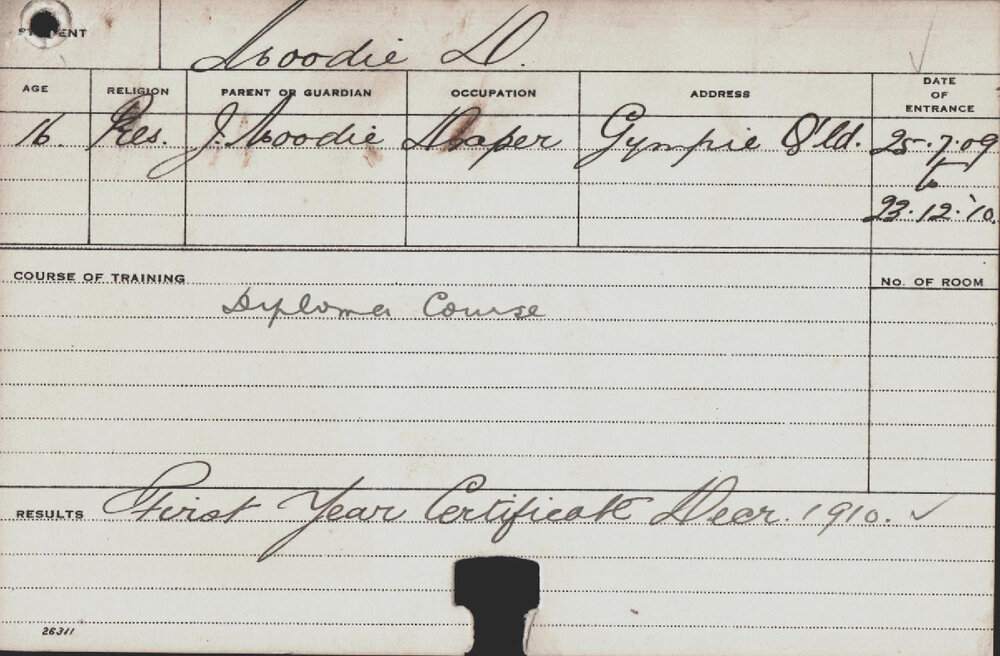 STUDENT Moodie D.
AGE RELIGION PARENT OR GUARDIAN OCCUPATION ADDRESS DATE OF ENTRANCE
16. Pres. J. Moodie Draper Gympie Q'ld. 25.7.09
to
23.12.'10.
COURSE OF TRAINING No. OF ROOM
Diploma Course
RESULTS First Year Certificate Decr. 1910. ✓
26311